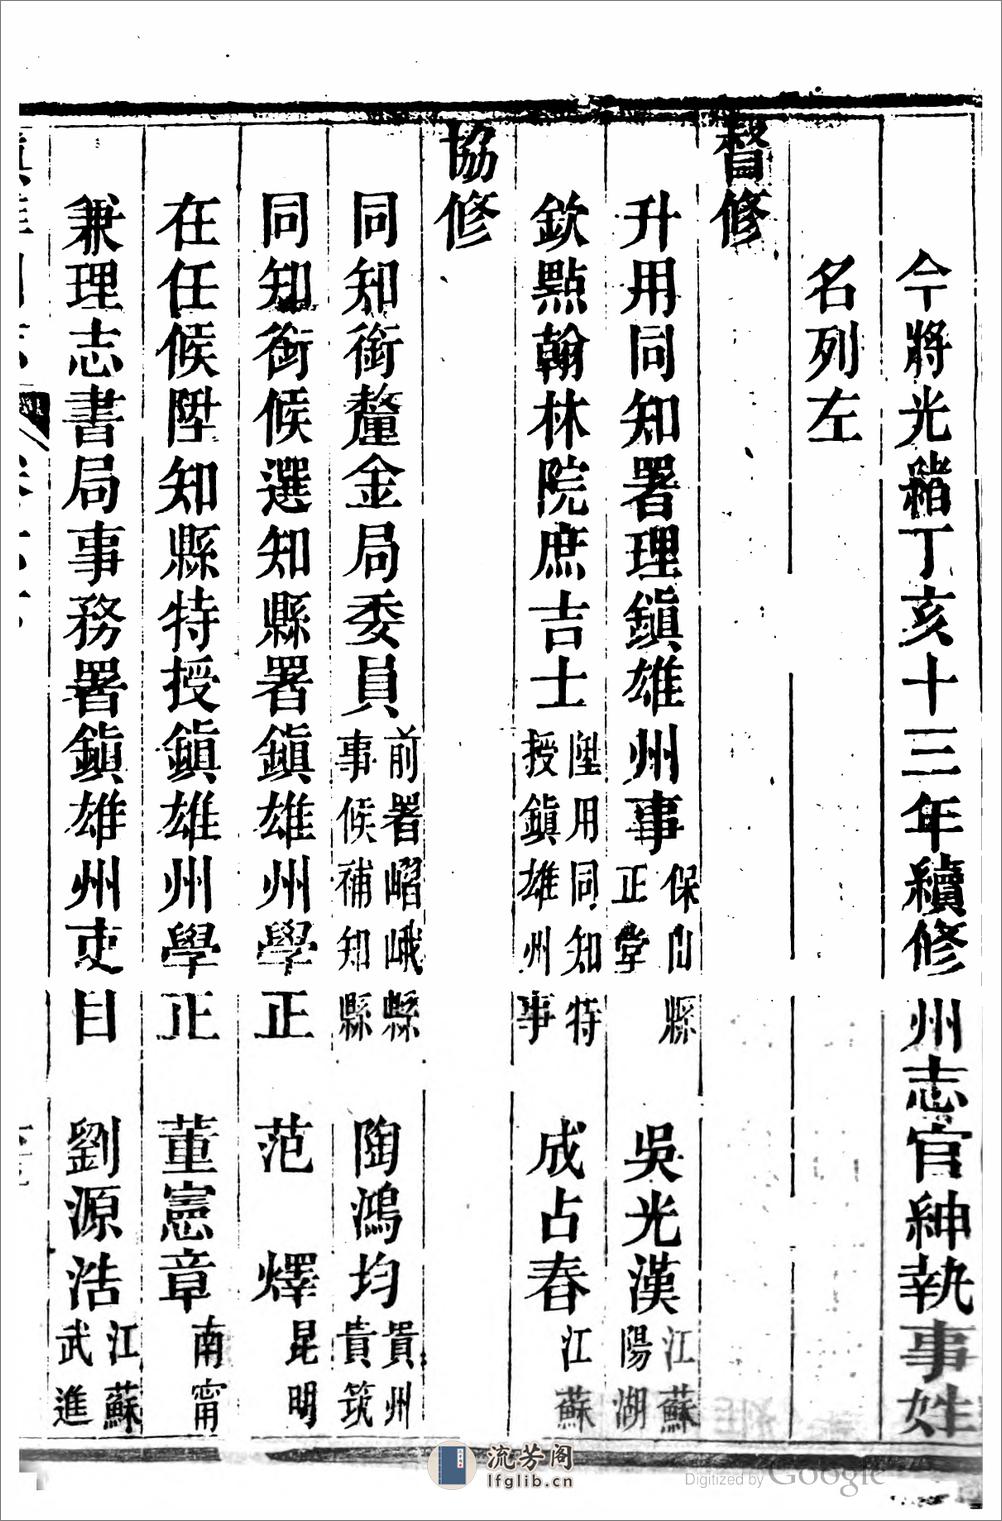 今將光緒丁亥十三年續修州志官紳執事姓
名列左
督修
升用同知署理鎭雄州事 保山縣正堂 吳光漢 江蘇陽湖
欽點翰林院庶吉士 陞用同知特授鎭雄州事 成占春 江蘇
協修
同知銜釐金局委員 前署嶍峨縣事候補知縣 陶鴻均 貴州貴筑
同知銜候選知縣署鎭雄州學正 范燡 昆明
在任候陞知縣特授鎭雄州學正 董憲章 南甯
兼理志書局事務署鎭雄州吏目 劉源浩 江蘇武進
流芳阁
lfglib.cn
Digitized by Google